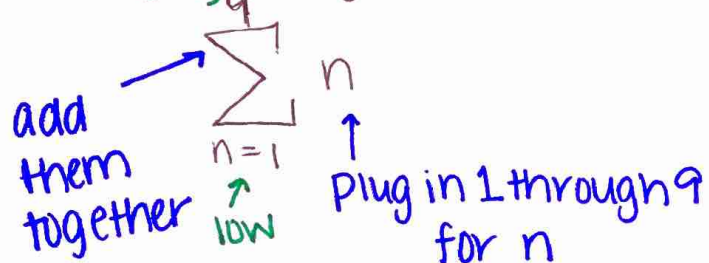 9
Σ n
n = 1
add
them
together
low
Plug in 1 through 9
for n